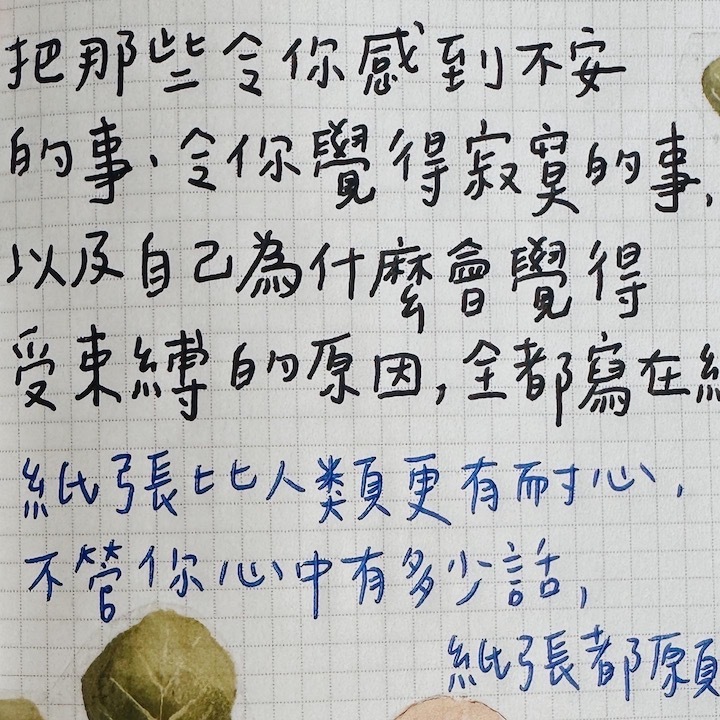 把那些令你感到不安
的事、令你覺得寂寞的事,
以及自己為什麼會覺得
受束縛的原因,全都寫在
紙張比人類更有耐心,
不管你心中有多少話,
紙張都願